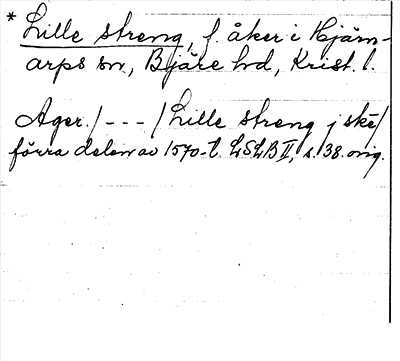 * Lille streng, f. åker i Hjärn-
arps sn, Bjäre hd, Krist. l.
Ager / - - - / Lille streng j skē /
förra delen av 1570-t. LSLB II, s. 38. orig.